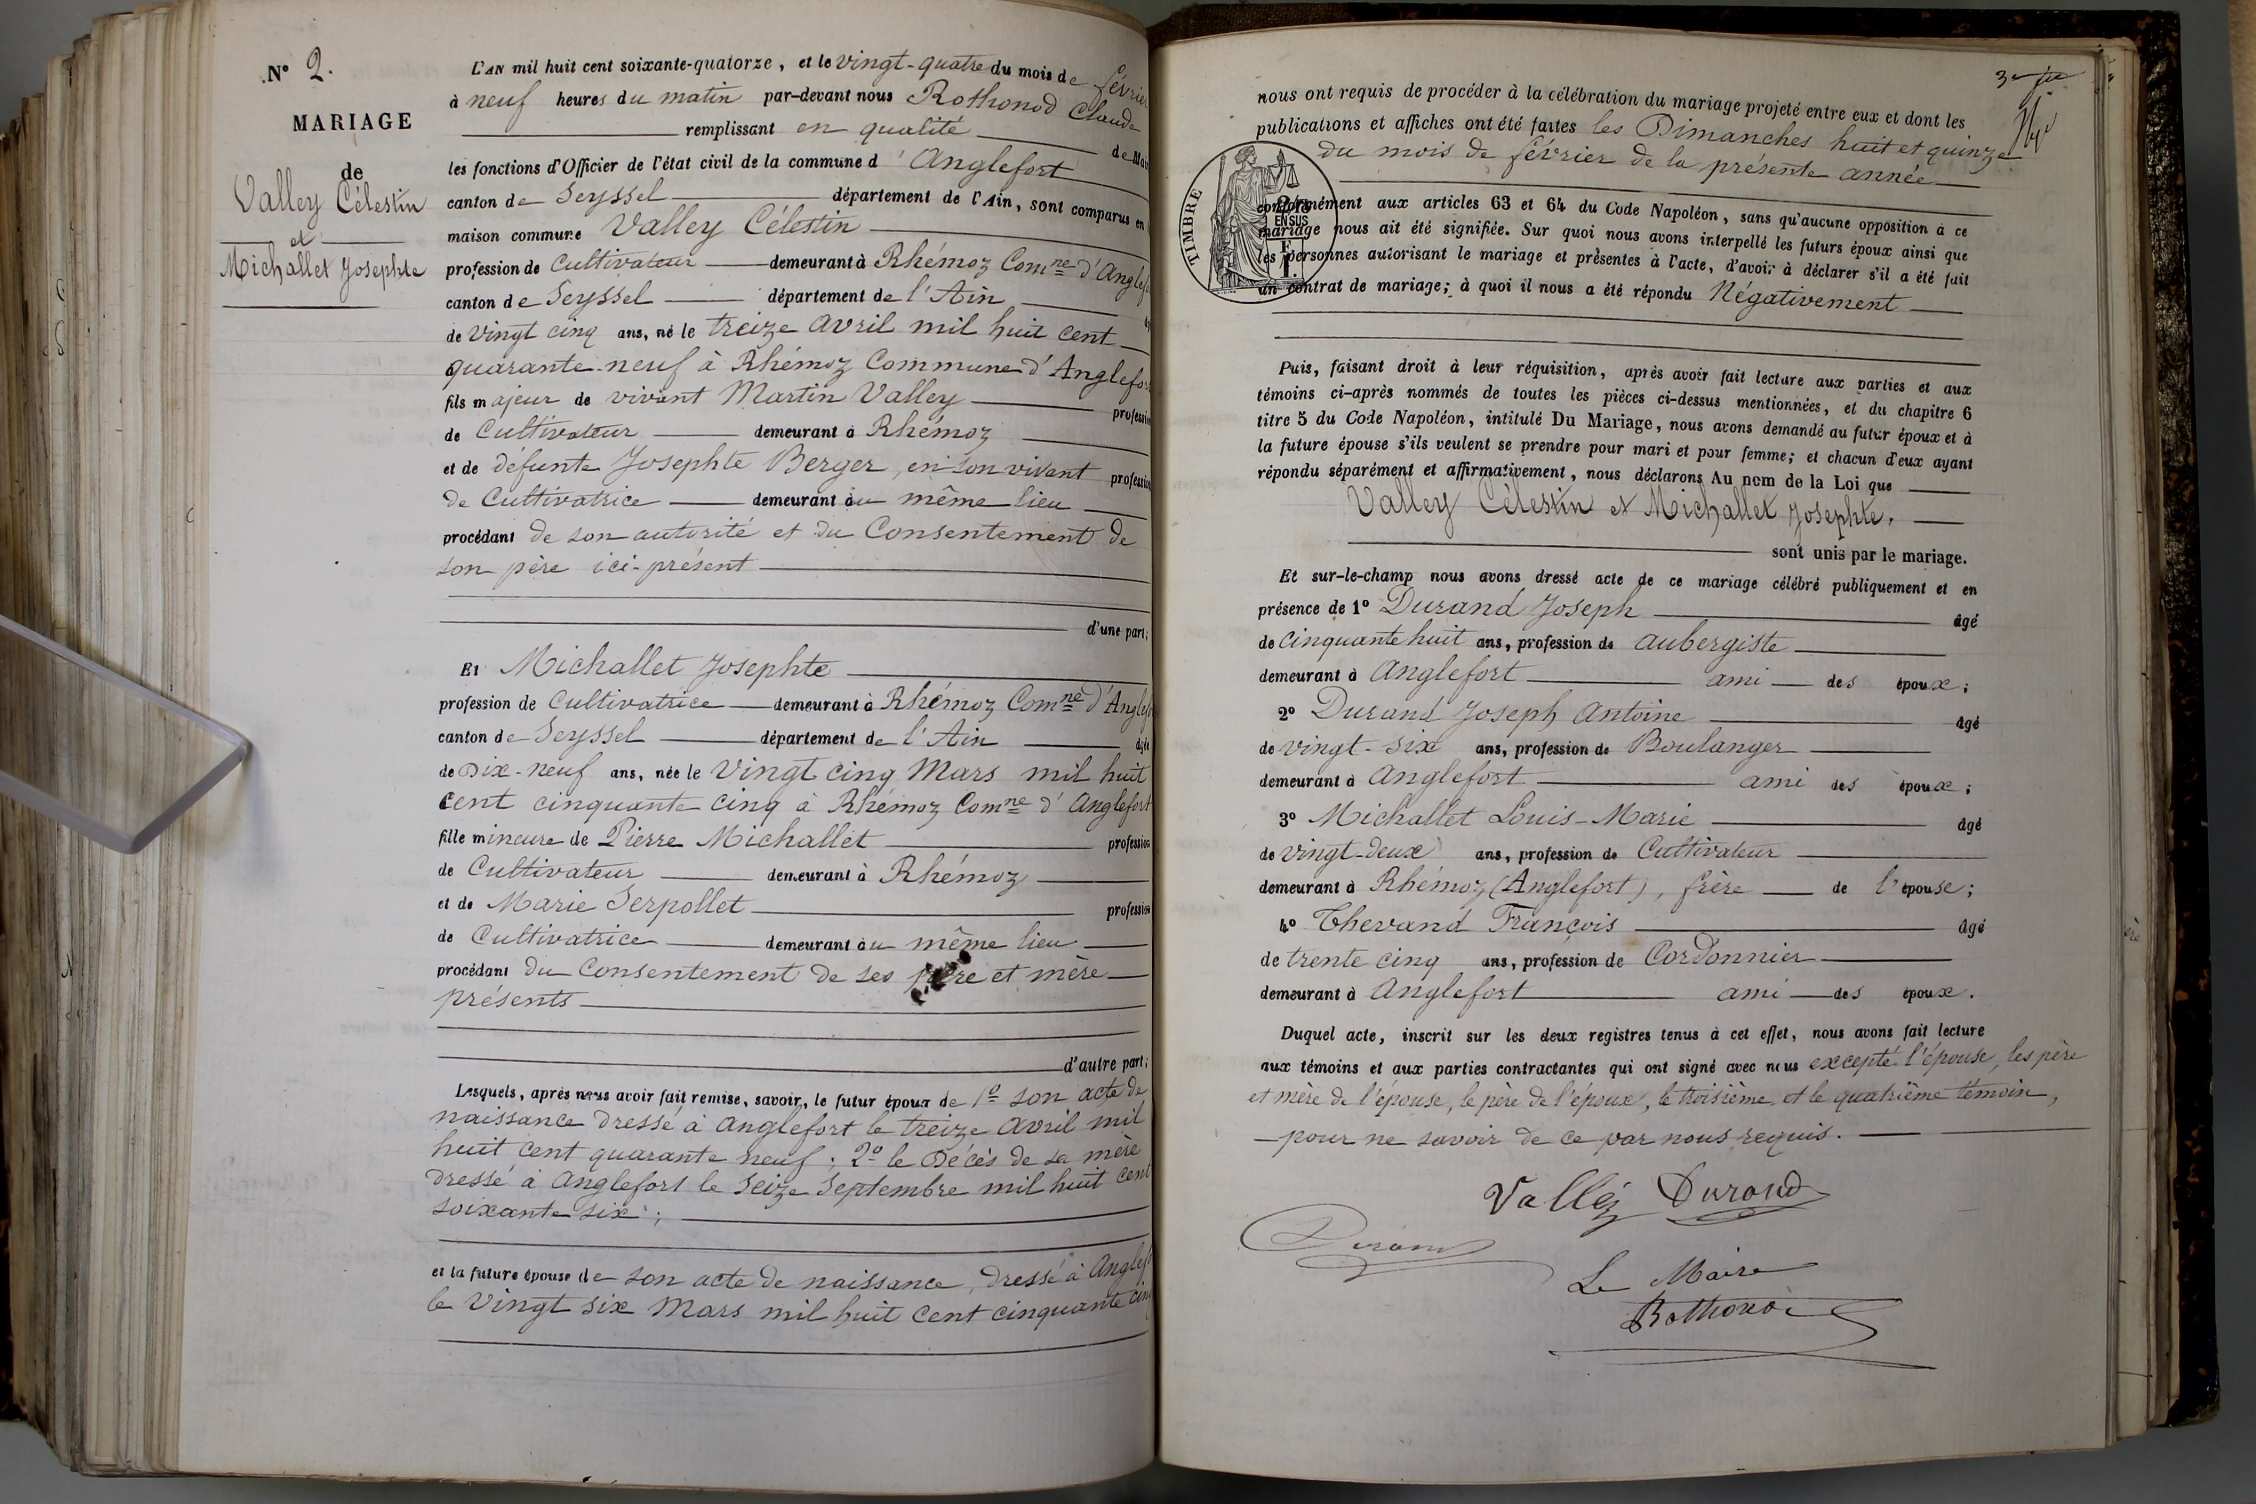 N° 2.
MARIAGE
de
Valley Célestin
et
Michallet Josephte
L'AN mil huit cent soixante-quatorze, et le vingt-quatre du mois de février
à neuf heures du matin par-devant nous Rothonod Claude
remplissant en qualité de
les fonctions d'Officier de l'état civil de la commune d'Anglefort
canton de Seyssel département de l'Ain, sont comparus en
maison commune Valley Célestin
profession de Cultivateur demeurant à Rhémoz Comne d'Anglef
canton de Seyssel département de l'Ain
de vingt cinq ans, né le treize avril mil huit cent
quarante-neuf à Rhémoz Commune d'Anglefort
fils majeur de vivant Martin Valley profession
de Cultivateur demeurant à Rhémoz
et de défunte Josephte Berger, en son vivant profession
de Cultivatrice demeurant au même lieu
procédant de son autorité et du Consentement de
son père ici-présent
d'une part;
Et Michallet Josephte
profession de Cultivatrice demeurant à Rhémoz Comne d'Anglef
canton de Seyssel département de l'Ain âgée
de Dix-neuf ans, née le Vingt cinq Mars mil huit
cent cinquante cinq à Rhémoz Comne d'Anglefort
fille mineure de Pierre Michallet profession
de Cultivateur demeurant à Rhémoz
et de Marie Serpollet profession
de Cultivatrice demeurant au même lieu
procédant du Consentement de ses père et mère
présents
d'autre part;
Lesquels, après nous avoir fait remise, savoir, le futur époux de 1° son acte de
naissance dressé à Anglefort le treize avril mil
huit cent quarante neuf; 2° le Décès de sa mère
dressé à Anglefort le seize Septembre mil huit cent
soixante six;
et la future épouse de son acte de naissance, dressé à Anglef
le Vingt six Mars mil huit cent cinquante cinq
nous ont requis de procéder à la célébration du mariage projeté entre eux et dont les
publications et affiches ont été faites les Dimanches huit et quinze
du mois de février de la présente année
TIMBRE
EN SUS
conformément aux articles 63 et 64 du Code Napoléon, sans qu'aucune opposition à ce
mariage nous ait été signifiée. Sur quoi nous avons interpellé les futurs époux ainsi que
les personnes autorisant le mariage et présentes à l'acte, d'avoir à déclarer s'il a été fait
un contrat de mariage; à quoi il nous a été répondu Négativement
Puis, faisant droit à leur réquisition, après avoir fait lecture aux parties et aux
témoins ci-après nommés de toutes les pièces ci-dessus mentionnées, et du chapitre 6
titre 5 du Code Napoléon, intitulé Du Mariage, nous avons demandé au futur époux et à
la future épouse s'ils veulent se prendre pour mari et pour femme; et chacun d'eux ayant
répondu séparément et affirmativement, nous déclarons Au nom de la Loi que
Valley Célestin et Michallet Josephte,
sont unis par le mariage.
Et sur-le-champ nous avons dressé acte de ce mariage célébré publiquement et en
présence de 1° Durand Joseph âgé
de cinquante huit ans, profession de aubergiste
demeurant à Anglefort ami des époux;
2° Durand Joseph Antoine âgé
de vingt-six ans, profession de Boulanger
demeurant à Anglefort ami des époux;
3° Michallet Louis-Marie âgé
de vingt-deux ans, profession de Cultivateur
demeurant à Rhémoz (Anglefort), frère de l'épouse;
4° Thevand François âgé
de trente cinq ans, profession de Cordonnier
demeurant à Anglefort ami des époux.
Duquel acte, inscrit sur les deux registres tenus à cet effet, nous avons fait lecture
aux témoins et aux parties contractantes qui ont signé avec nous excepté l'épouse, les père
et mère de l'épouse, le père de l'époux, le troisième et le quatrième témoin,
pour ne savoir de ce par nous requis.
Valléz Durand
Durand
Le Maire
Rothonod